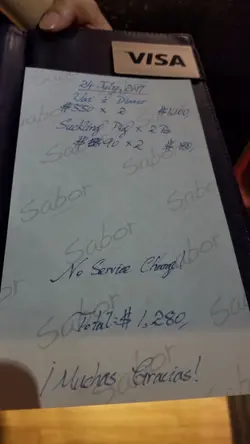 VISA
24 July, 2017
Dinner
$550 × 2 $1,100
Suckling Pig × 2
$90 × 2 $180
No Service Charge!
Total: $1,280
¡Muchas Gracias!
Sabor
Sabor
Sabor
Sabor
Sabor